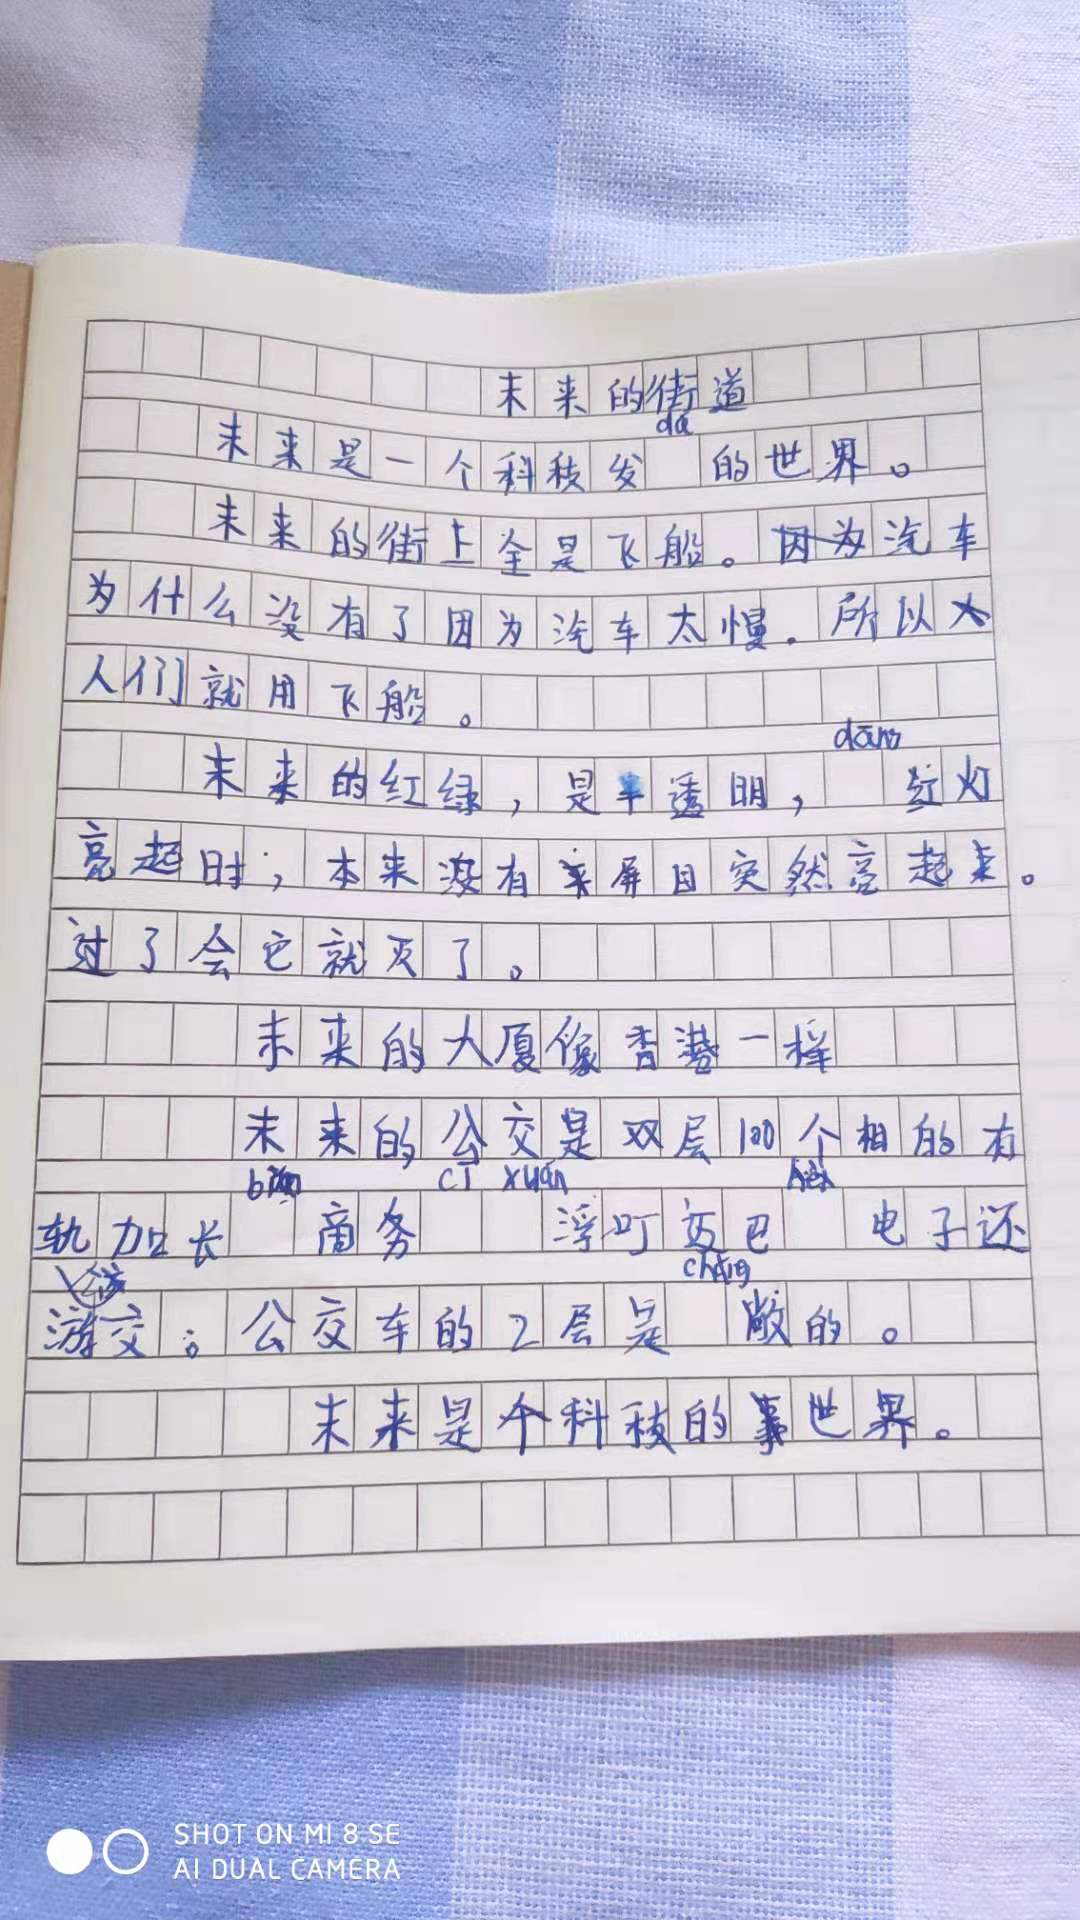 未来的街道
dá
未来是一个科技发 的世界。
未来的街上全是飞船。因为汽车
为什么没有了因为汽车太慢.所以
人们就用飞船。
dāng
未来的红绿,是半透明, 红灯
亮起时;本来没有屏目突然亮起来。
过了会它就灭了。
未来的大厦像香港一样
未来的公交是双层100个相的有
cí xuán
轨加长 商务 浮叮 巴 电子还
chǎng
游交。公交车的2层是 敞的。
未来是个科技的世界。
SHOT ON MI 8 SE
AI DUAL CAMERA